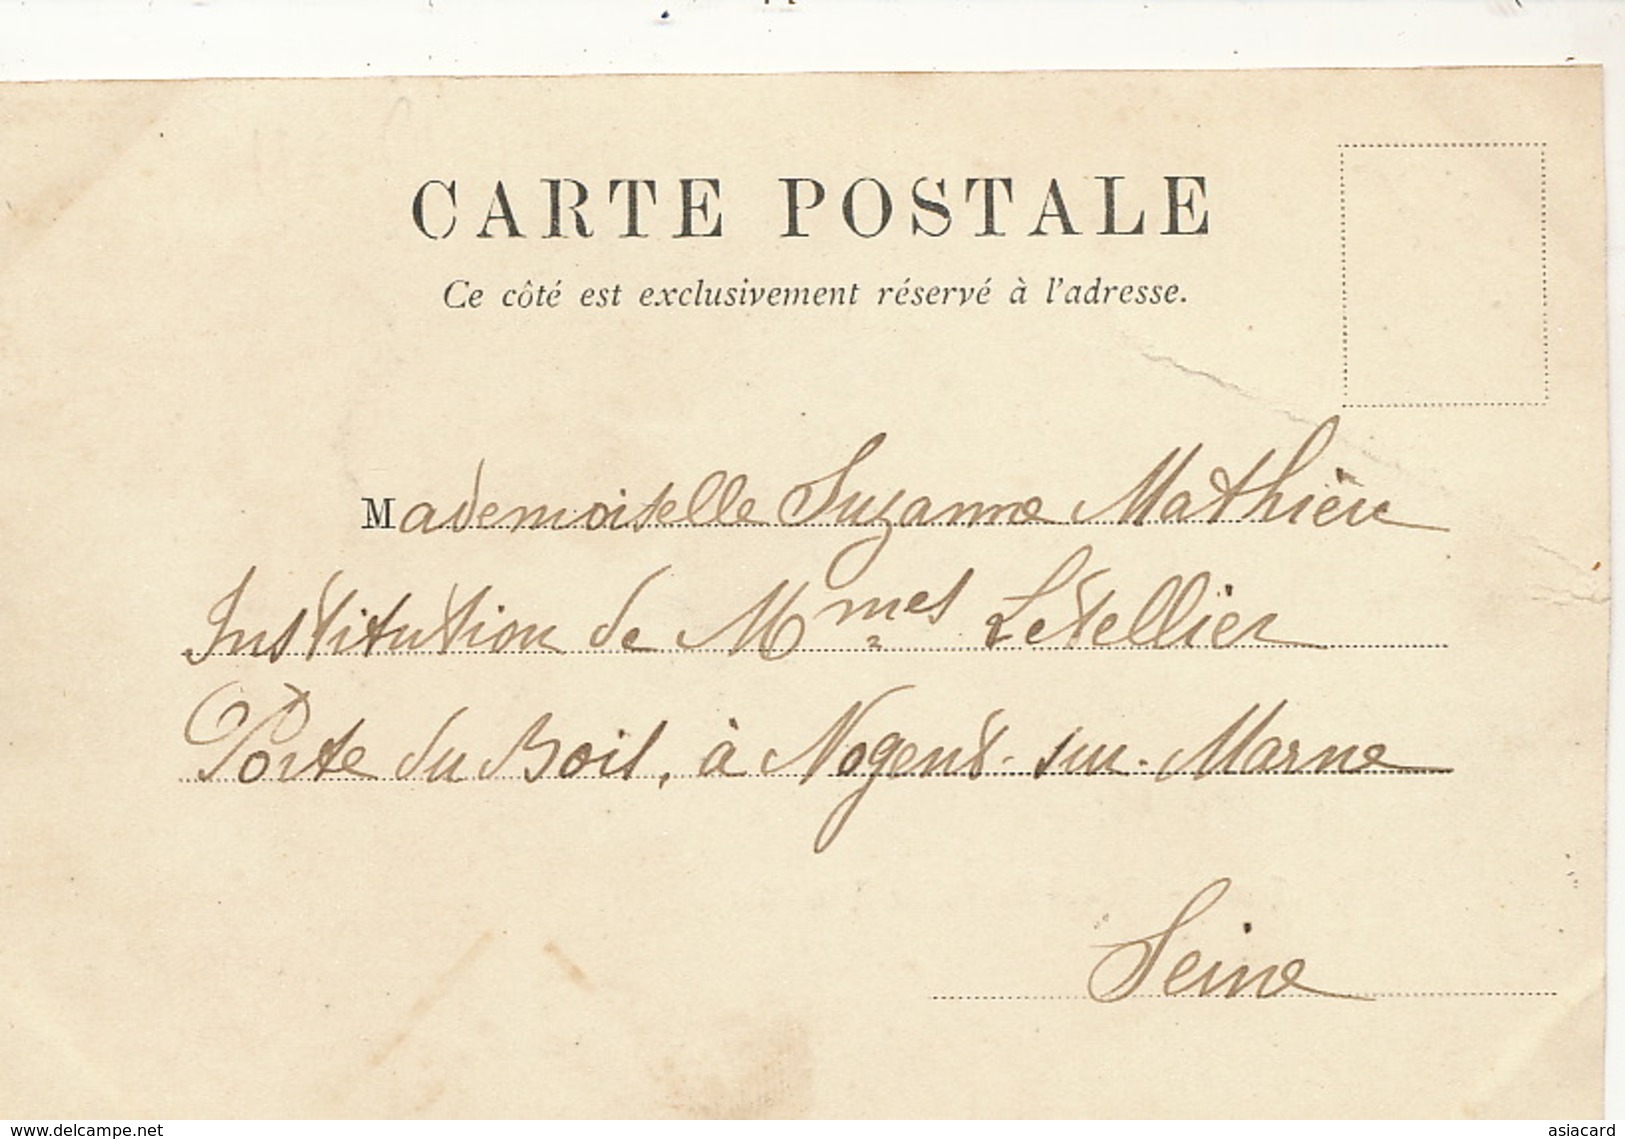 CARTE POSTALE
Ce côté est exclusivement réservé à l'adresse.
Mademoiselle Suzanne Mathieu
Institution de Mmes Letellier
Porte du Bois, à Nogent-sur-Marne
Seine
www.delcampe.net
asiacard